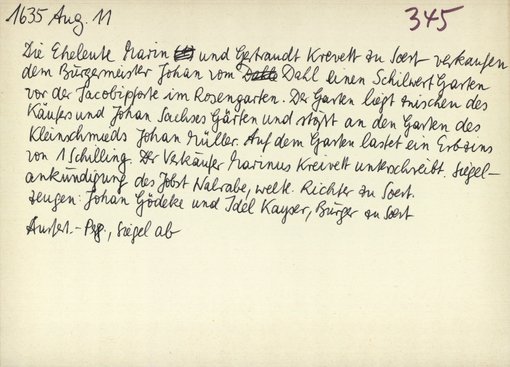 1635 Aug. 11
345
Die Eheleute Marin und Gertraudt Krevett zu Soest verkaufen
dem Bürgermeister Johan vom Dahl einen Schilwert Garten
vor der Jacobipforte im Rosengarten. Der Garten liegt zwischen des
Käufers und Johan Sachses Gärten und stößt an den Garten des
Kleinschmieds Johan Müller. Auf dem Garten lastet ein Erbzins
von 1 Schilling. Der Verkäufer Marinus Kreivett unterschreibt. Siegel-
ankündigung des Jobst Walrabe, weltl. Richter zu Soest.
Zeugen: Johan Gödeke und Idel Kayser, Bürger zu Soest
Ausfert.-Perg., Siegel ab